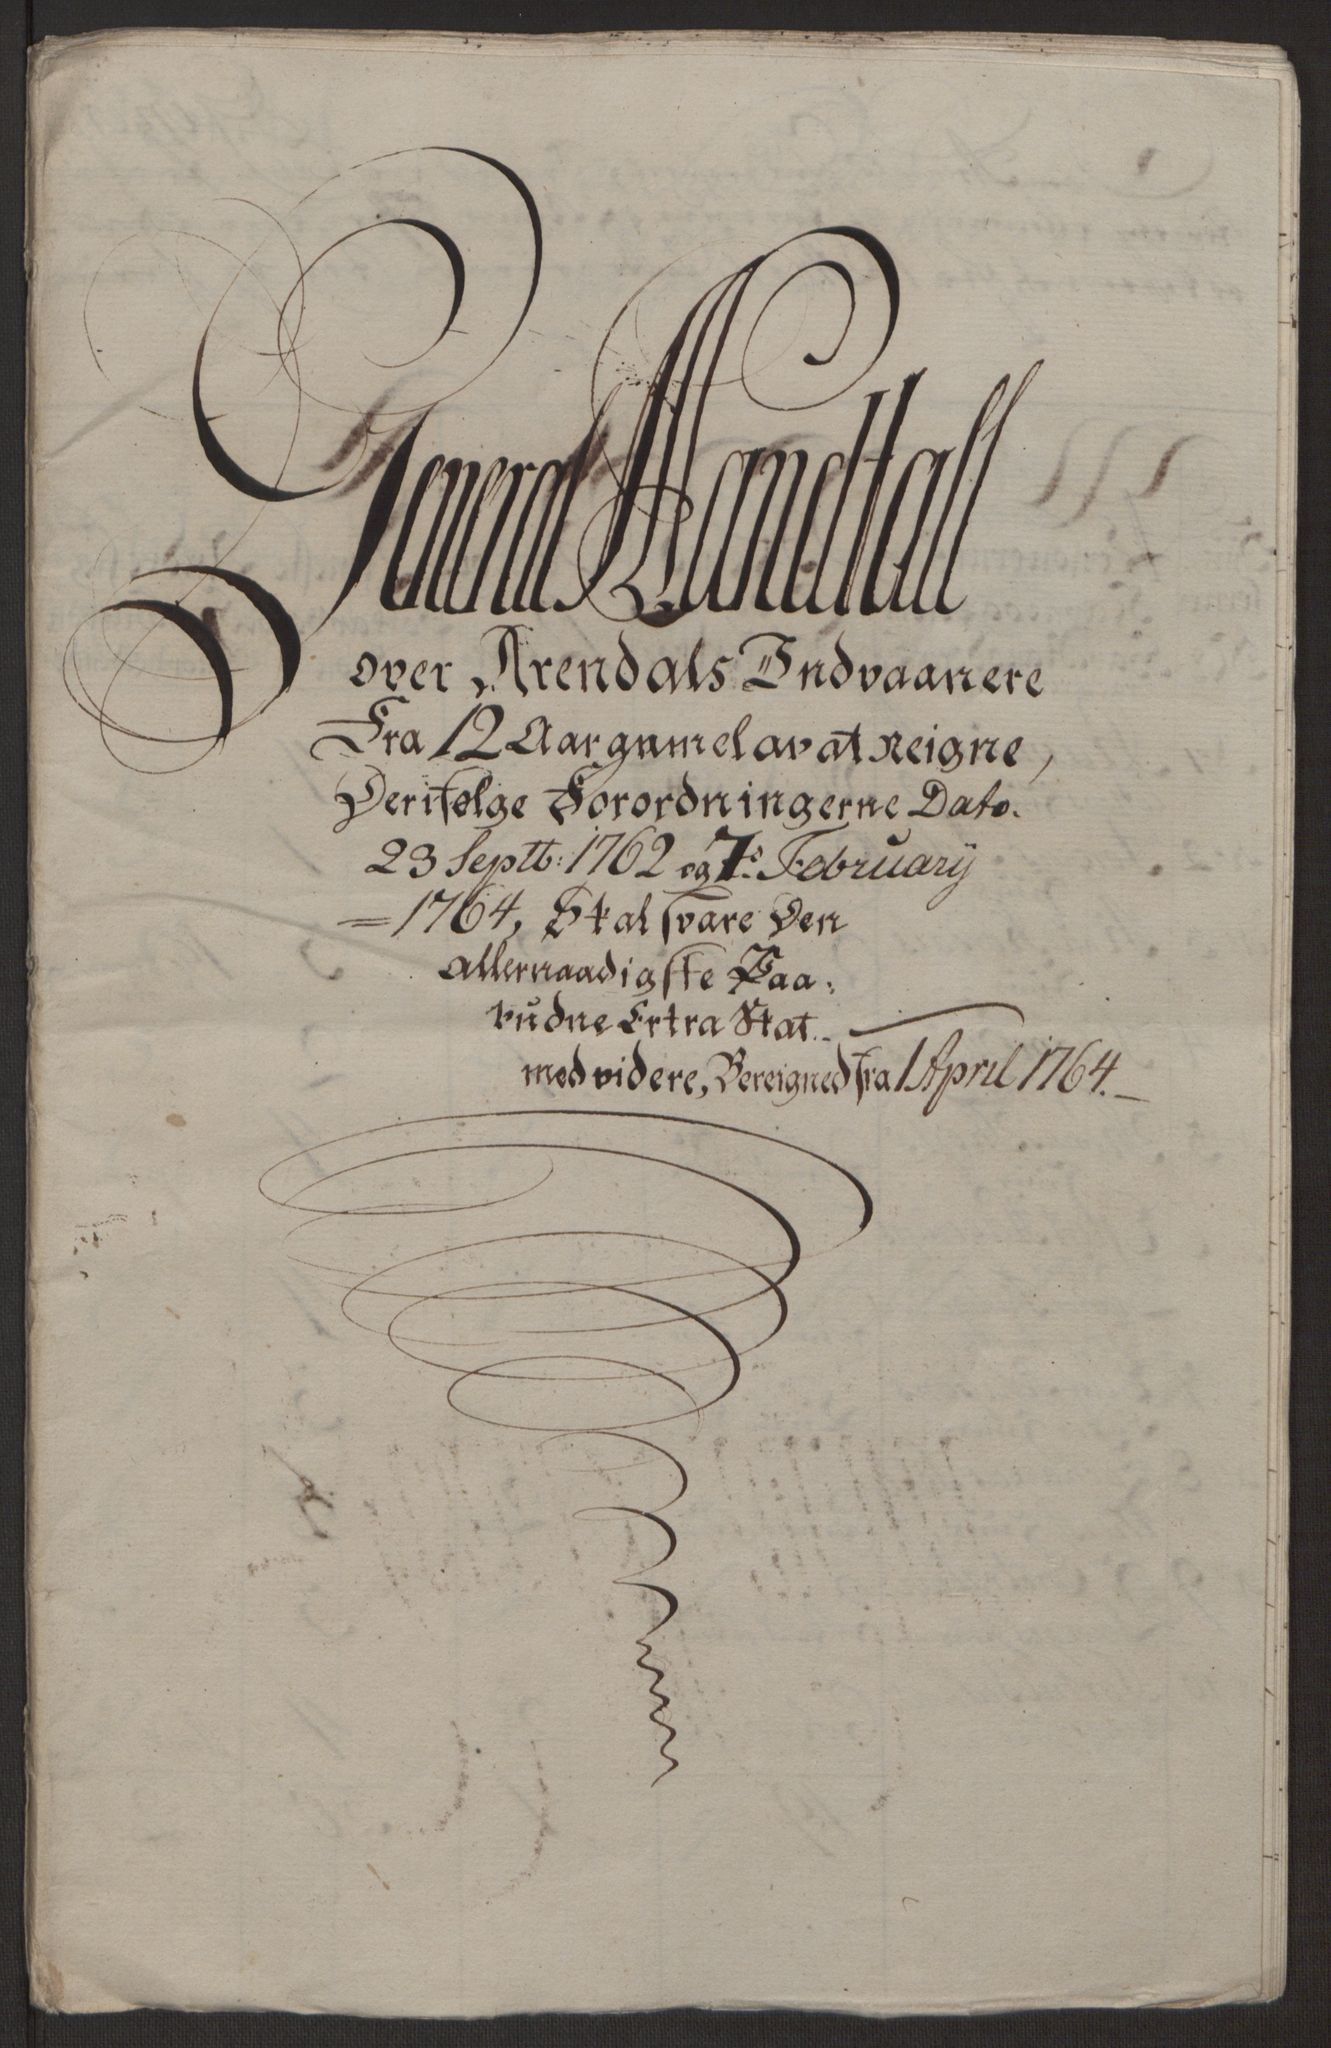 General Mandtall
over Arendals Indvaanere
Fra 12 Aar gamel av at Reigne,
Der ifølge Forordningerne Dato.
23 Septb: 1762 og 7de February
1764, Skal svare Den
allernaadigste Paa-
budne Extra Skat
med videre, Bereigned fra 1 April 1764.